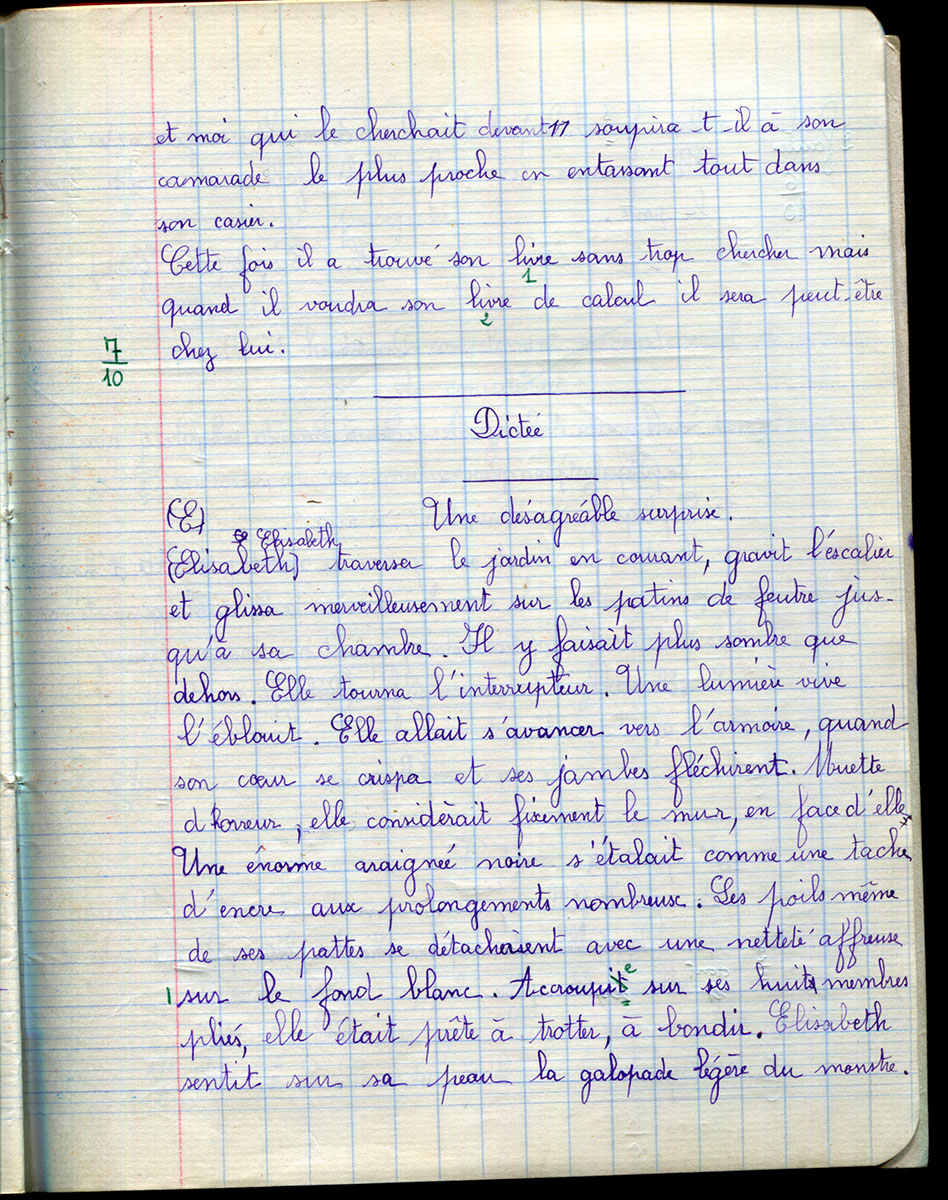 et moi qui le cherchait devant" soupira-t-il à son
camarade le plus proche en entassant tout dans
son casier.
Cette fois il a trouvé son livre sans trop chercher mais
1
quand il voudra son livre de calcul il sera peut-être
2
chez lui.
7
10
Dictée
(E) Une désagréable surprise.
Elisabeth
(Elisabeth) traversa le jardin en courant, gravit l'éscalier
et glissa merveilleusement sur les patins de feutre jus-
qu'à sa chambre. Il y faisait plus sombre que
dehors. Elle tourna l'interrupteur. Une lumière vive
l'éblouit. Elle allait s'avancer vers l'armoire, quand
son cœur se crispa et ses jambes fléchirent. Muette
d'horreur, elle considèrait fixement le mur, en face d'elle.
Une énorme araignée noire s'étalait comme une tache
d'encre aux prolongements nombreux. Les poils même
de ses pattes se détachaient avec une netteté affreuse
1 sur le fond blanc. Accroupie sur ses huit membres
pliés, elle était prête à trotter, à bondir. Elisabeth
sentit sur sa peau la galopade légère du monstre.